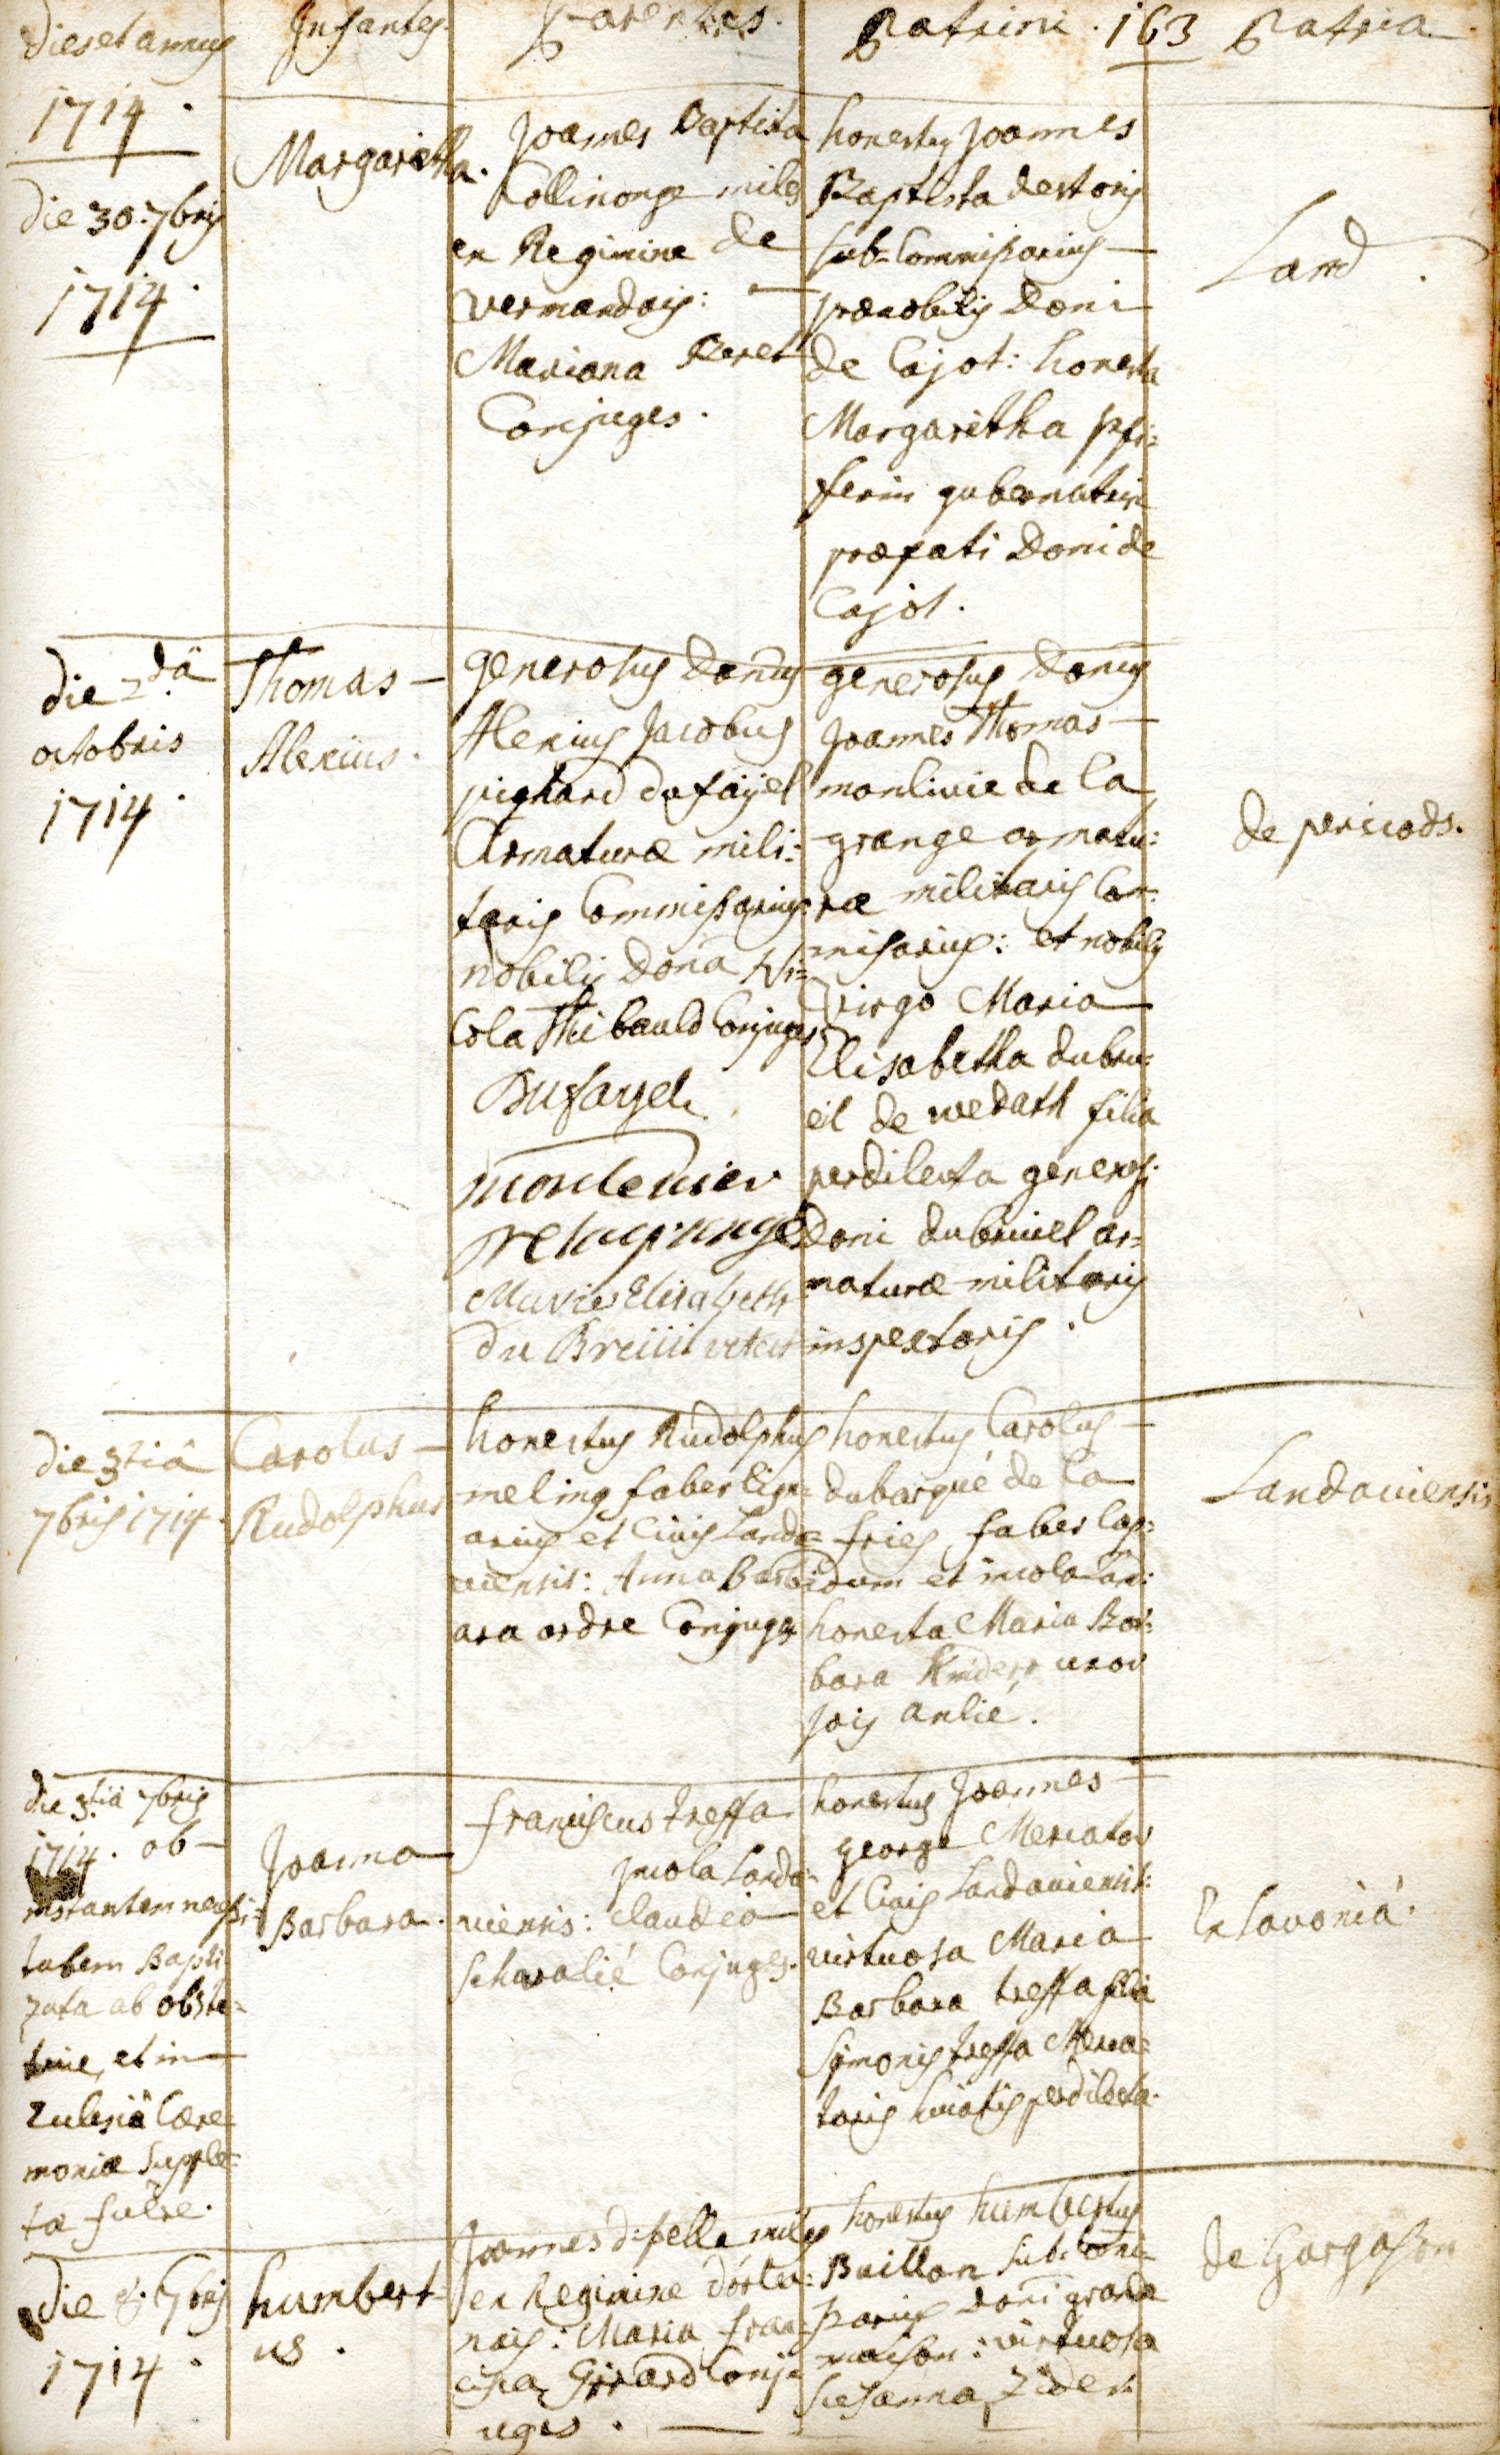 dies et annus Infantes Parentes. Patrini. 163 Patria
1714.
die 30. 7bris
1714.
Margaretha.
Joannes Baptista
Collinonge miles
ex Regimine de
vermandois:
Mariana Peret
Conjuges.
honestus Joannes
Baptista destoris
sub-Commissarius
prænobilis Domi
de Cajot: honesta
Margaretha pfi=
ferin gubernatrix
præfati Domi de
Cajot.
Land
die 2dâ
octobris
1714.
Thomas
Alexius.
generosus Domus
Alexius Jacobus
pighard dufaÿel
Armaturæ mili:
taris Commissarius:
nobilis Doma Ni=
cola Thibauld Conjuges
Dufayel
Marie Elisabeth
du Breüil
generosus Domus
Joannes Thomas
monlivie de la
grange armatu:
ræ militaris Com=
misarius: et nobilis
virgo Maria
Elisabetha dubru=
eil de wedath filia
perdilecta generosi
Domi dubruiel ar=
maturæ militaris
inspectoris.
de pericods.
die 3tiâ
7bris 1714.
Carolus
Rudolphus
honestus Rudolphus
meling faber lign
arius et Civis Landa=
viensis: Anna Barb
ara ordre Conjuges
honestus Carolus
dubarqué de la
fries faber lapi=
dum et incola lan:
honesta Maria Bar:
bara uxor
jois anlié.
Landaviensis
die 3tiâ 7bris
1714. ob
instantem necessi=
tatem Bapti
zata ab obste=
trice, et in
Ecclesiâ Cære
moniæ supple=
tæ fuêre.
Joanna
Barbara.
franciscus treffa
incola Landa=
viensis: Claudia
schavalié Conjuges.
honestus Joannes
george Mercator
et Civis Landaviensis:
virtuosa Maria
Barbara treffa filia
Simonis treffa Merca=
toris huiatis perdilecta.
Ex savoniâ.
die 7bris
1714.
humbert
us.
Joannes disselle miles
ex Regimine dórlea=
nois: Maria fran=
cisca Girard Conj=
uges.
honestus humbertus
Buillon sub-Com=
sarius Domi grand
maison: virtuosa
susanna zider:
de Gargasson